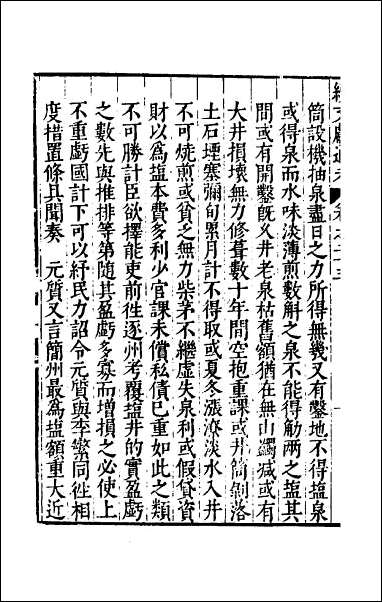 筒設機抽泉盡日之力所得無幾又有鑿地不得塩泉
或得泉而水味淡薄煎數斛之泉不能得觔两之塩其
間或有開鑿旣乆井老泉枯舊額猶在無由蠲减或有
大井損壞無力修葺數十年間空抱重課或井筒剝落
土石堙塞彌旬累月計不得取或夏冬漲潦淡水入井
不可燒煎或貧乏無力柴茅不繼虛失泉利或假貸資
財以為塩本費多利少官課未償私債已重如此之類
不可勝計臣欲擇能吏前徃逐州考覆塩井的實盈虧
之數先與推排等第随其盈虧多寡而增損之必使上
不重虧國計下可以紓民力詔令元質與李蘩同徃相
度措置條具聞奏　元質又言簡州最為塩額重大近